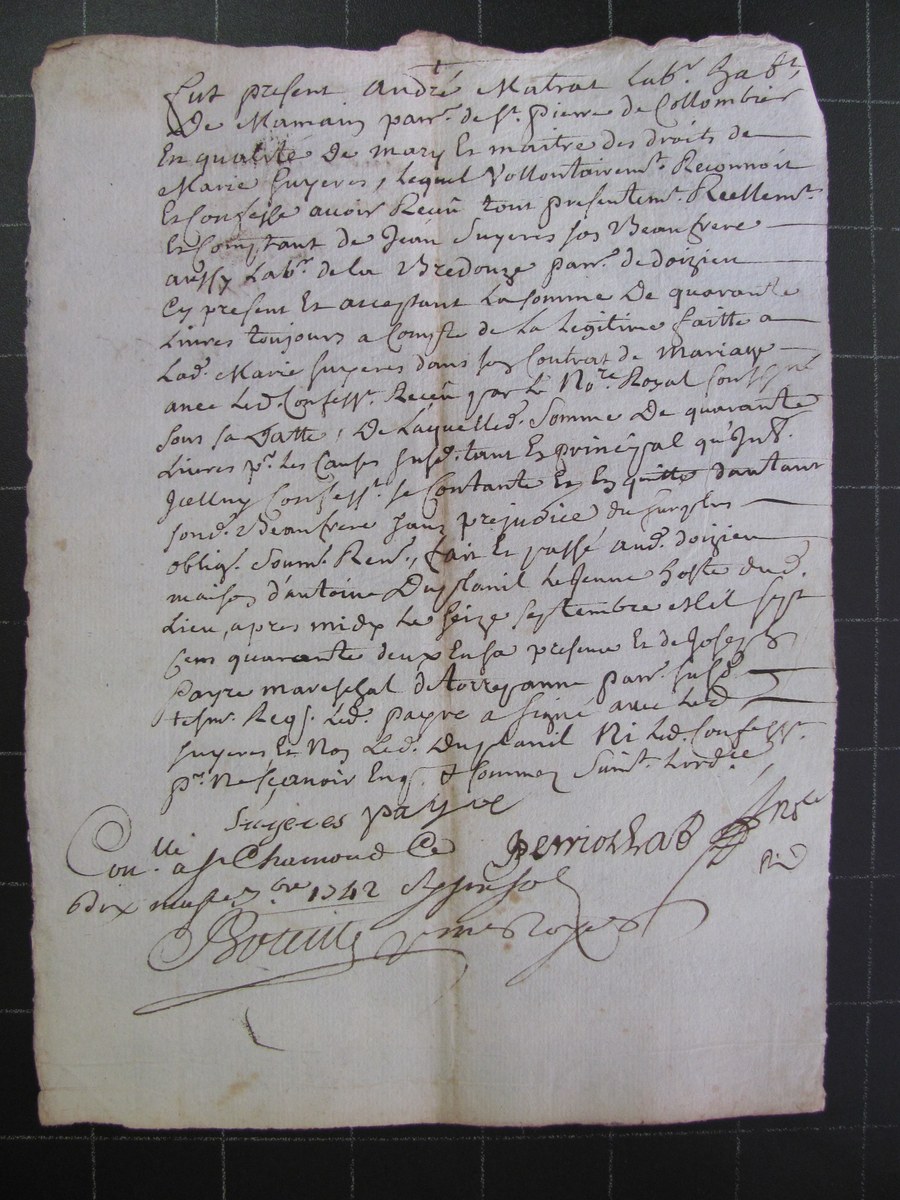 fut present andré Matrat Lab.r hab.t
De Mamain parr. de St. pierre de Collombier
En qualité De mary Et maitre des droits de
Marie Suyeres, Lequel Vollontairem.t Reconnoit
Et Confesse avoir Receu tout presentem.t Reellem.t
Et Comptant de Jean Suyeres son Beaufrere
aussy Lab.r de la Bredouze parr. de doizieu
Cy present Et acceptant La somme De quarante
Livres toujours a Compte de La Legitime faitte a
Lad. Marie Suyeres dans son Contrat de Mariage
avec Led. Confess.t Receu par Le No.re Royal soussigné
sous sa Datte, De Laquelled. somme De quarante
Livres p.r Les Causes susd. tant En principal qu'Int.
Icelluy Confess.t se Contante Et En quitte d'autant
sond. Beaufrere sans prejudice du surplus
oblig. soum. Ren., fait Et passé aud. doizieu
maison d'antoine Duplanil Le Jeune hoste dud.
Lieu, apres midy Le seize septembre Mil sept
Cens quarante deux En sa presence Et de Joseph
payre mareschal de torrepanne parr. susd.
tesm. Req. Led. payre a signé avec Led.
suyeres Et Non Led. Duplanil Ni Led. Confess.t
p.r Ne sçavoir Enq. & sommez suiv.t Lord.ce
Suyeres payre
Con.lle a St Chamond Ce
dix neuf 7bre 1742